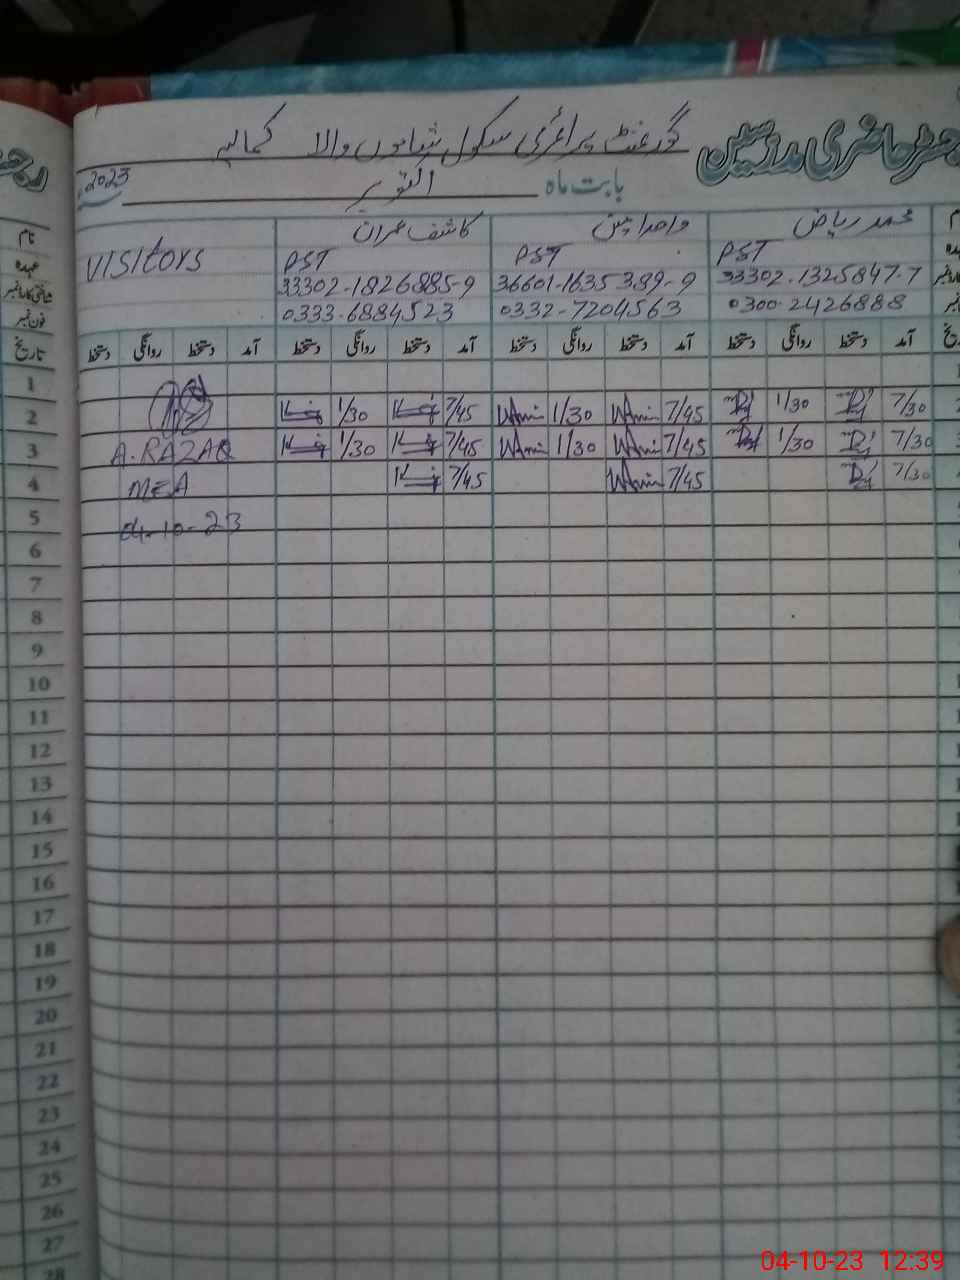 رجسٹر حاضری مدرسین گورنمنٹ پرائمری سکول والا کمالیہ
بابت ماہ اکتوبر 2023
نام محمد ریاض کاشف عمران VISITORS
عہدہ PST PST PST
شناختی کارڈ نمبر 33302-1325847-7 36601-1635389-9 33302-1826885-9
فون نمبر 0300-2426888 0332-7204563 0333-6884523
تاریخ آمد دستخط روانگی دستخط آمد دستخط روانگی دستخط آمد دستخط روانگی دستخط آمد دستخط روانگی دستخط
1
2 7/30 1/30 7/45 WAmin 1/30 WAmin 7/45 1/30
3 7/30 1/30 7/45 WAmin 1/30 WAmin 7/45 1/30 A.RAZAQ
4 7/30 7/45 WAmin 7/45 MEA
5 04-10-23
6
7
8
9
10
11
12
13
14
15
16
17
18
19
20
21
22
23
24
25
26
27
28
04-10-23 12:39